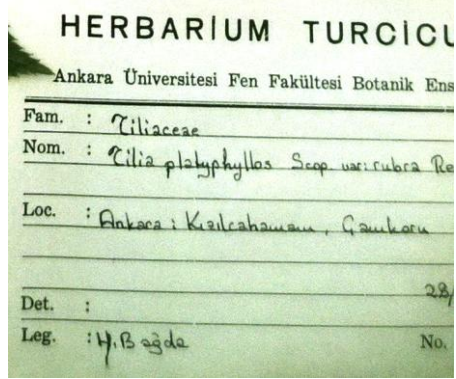 HERBARİUM TURCİCU
Ankara Üniversitesi Fen Fakültesi Botanik Ens
Fam. : Tiliaceae
Nom. : Tilia platyphyllos Scop. var: rubra Re
Loc. : Ankara : Kızılcahamam, Çamkoru
28/
Det. :
Leg. : H. Bağda
No.